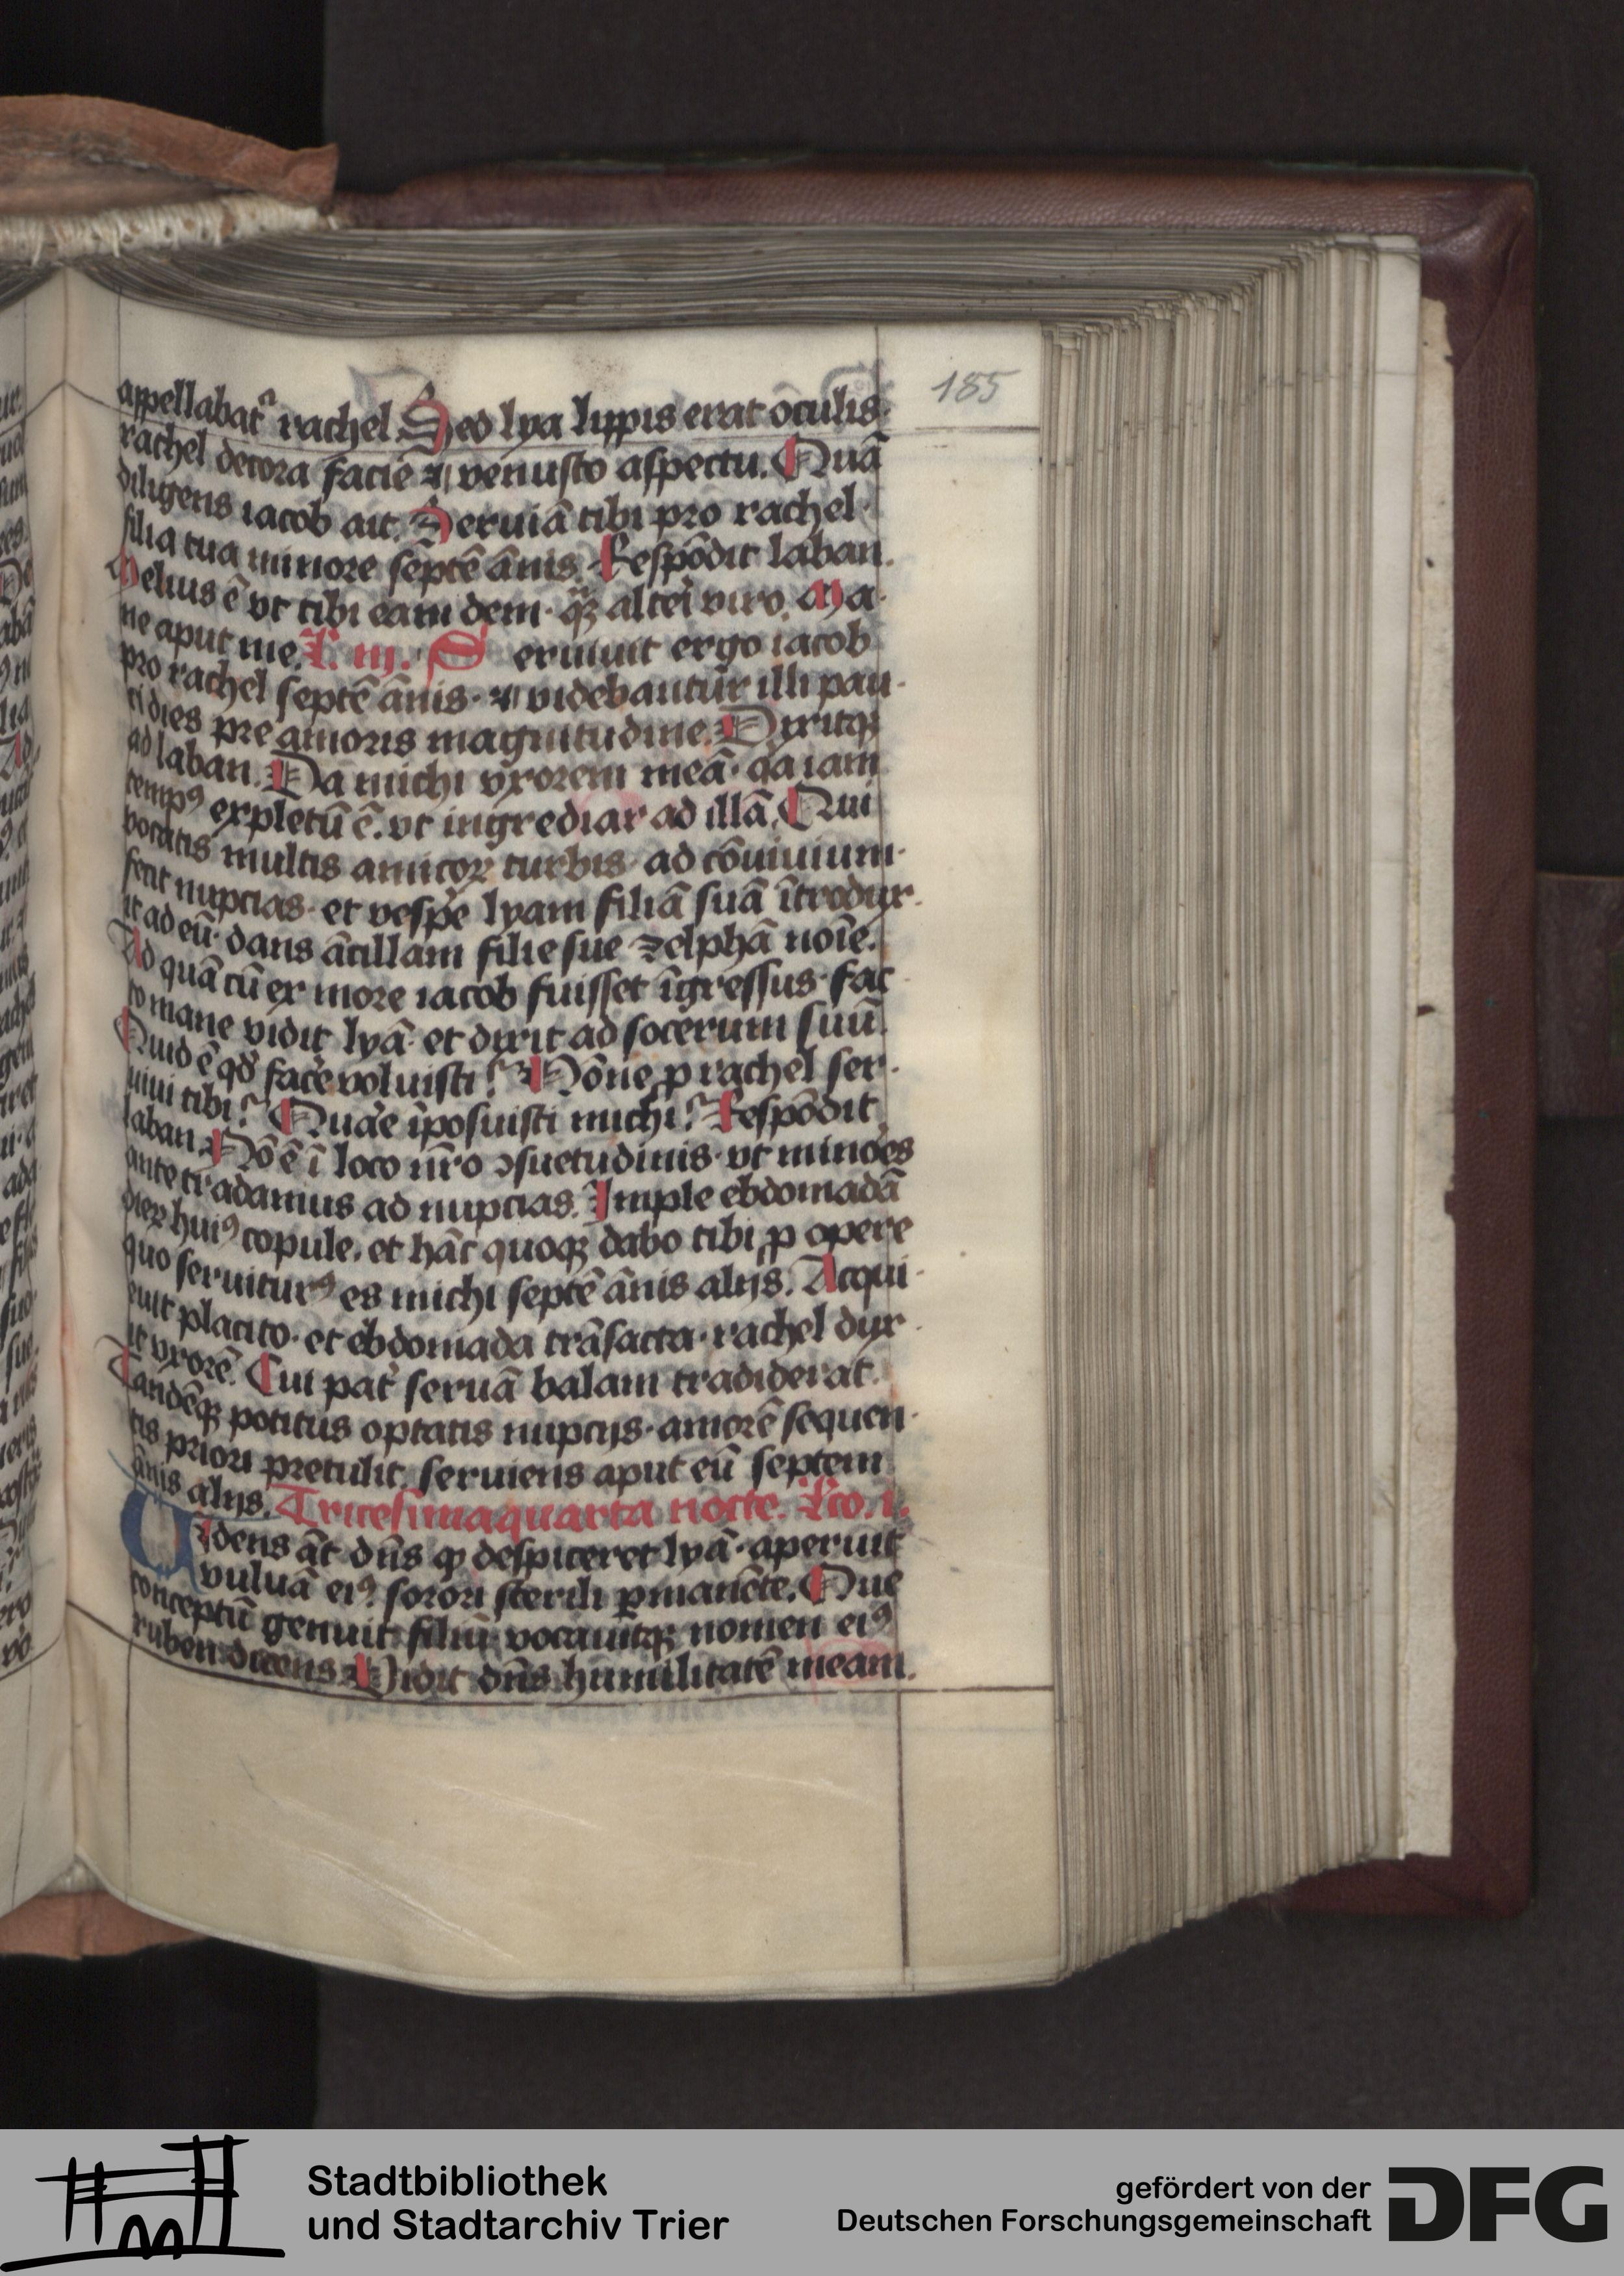 185
appellabat᷑ rachel Sed lya lippis erat oculis·
rachel decora facie ⁊ venusto aspectu. Quā
diligens iacob ait. Seruiā tibi pro rachel·
filia tua minore septē ānis. Respōdit laban.
Melius ē vt tibi eam dem· qͣꝫ alteri viro. Ma-
ne aput me. L. iii. Seruiuit ergo iacob
pro rachel septē ānis· ⁊ videbantur illi pau-
ci dies pre amoris magnitudine. Dixitqꝫ
ad laban. Da michi vxorem meā· qa iam
tempꝰ expletū ē. vt ingrediar ad illā. Qui
vocatis multis amicoꝝ turbis· ad cōuiuium·
fecit nupcias· et vespe lyam filiā suā ītrodux-
it ad eū· dans ācillam filie sue zelphā noīe.
Ad quā cū ex more iacob fuisset īgressus· fac-
to mane vidit lyā· et dixit ad socerum suū.
Quid ē qd̕ fac̕e voluisti? Nōne ꝓ rachel ser-
uiui tibi? Quar̕e īposuisti michi? Respōdit
laban. Nō ē ī loco nr̄o ꝯsuetudinis· vt minor̕es
ante tradamus ad nupcias. Imple ebdomadā
dieꝝ huiꝰ copule. et hāc quoqꝫ dabo tibi ꝓ opere
quo seruiturꝰ es michi septē ānis alijs. Acqui-
euit placito· et ebdomada trāsacta· rachel dux-
it vxorē. Cui pat̕ seruā balam tradiderat.
Tandēqꝫ potitus optatis nupcijs· amorē sequen-
tis priori pretulit. seruiens aput eū septem
ānis alijs. Tricesimaquarta nocte. Lco. i.
Videns āt dn̄s ꝙ despiceret lyā· aperuit
vuluā eiꝰ. sorori sterili ꝑmanēte. Que
conceptū genuit filiū· vocauitqꝫ nomen eiꝰ
ruben· dicens. Vidit dn̄s humilitatē meam.
Stadtbibliothek
und Stadtarchiv Trier
gefördert von der
Deutschen Forschungsgemeinschaft
DFG